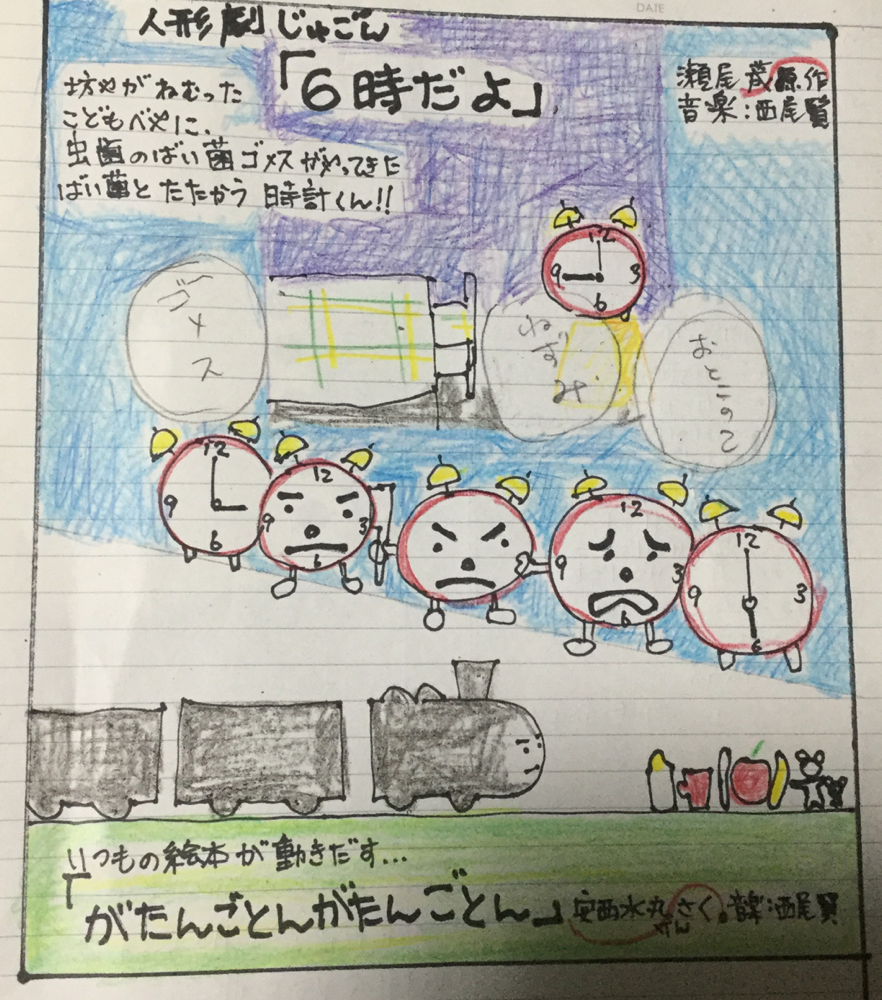 DATE
人形劇じゅごん
「6時だよ」
瀬尾 茂 原作
音楽:西尾賢
坊やがねむった
こどもべやに、
虫歯のばい菌ゴメスがやってきた
ばい菌とたたかう時計くん!!
12
9 3
6
ゴメス
ねずみ
おとこのこ
12
9
6
12
9 3
6
12
9 3
6
12
9 3
6
いつもの絵本が動きだす...
「がたんごとんがたんごとん」
安西水丸さく 音楽:西尾賢